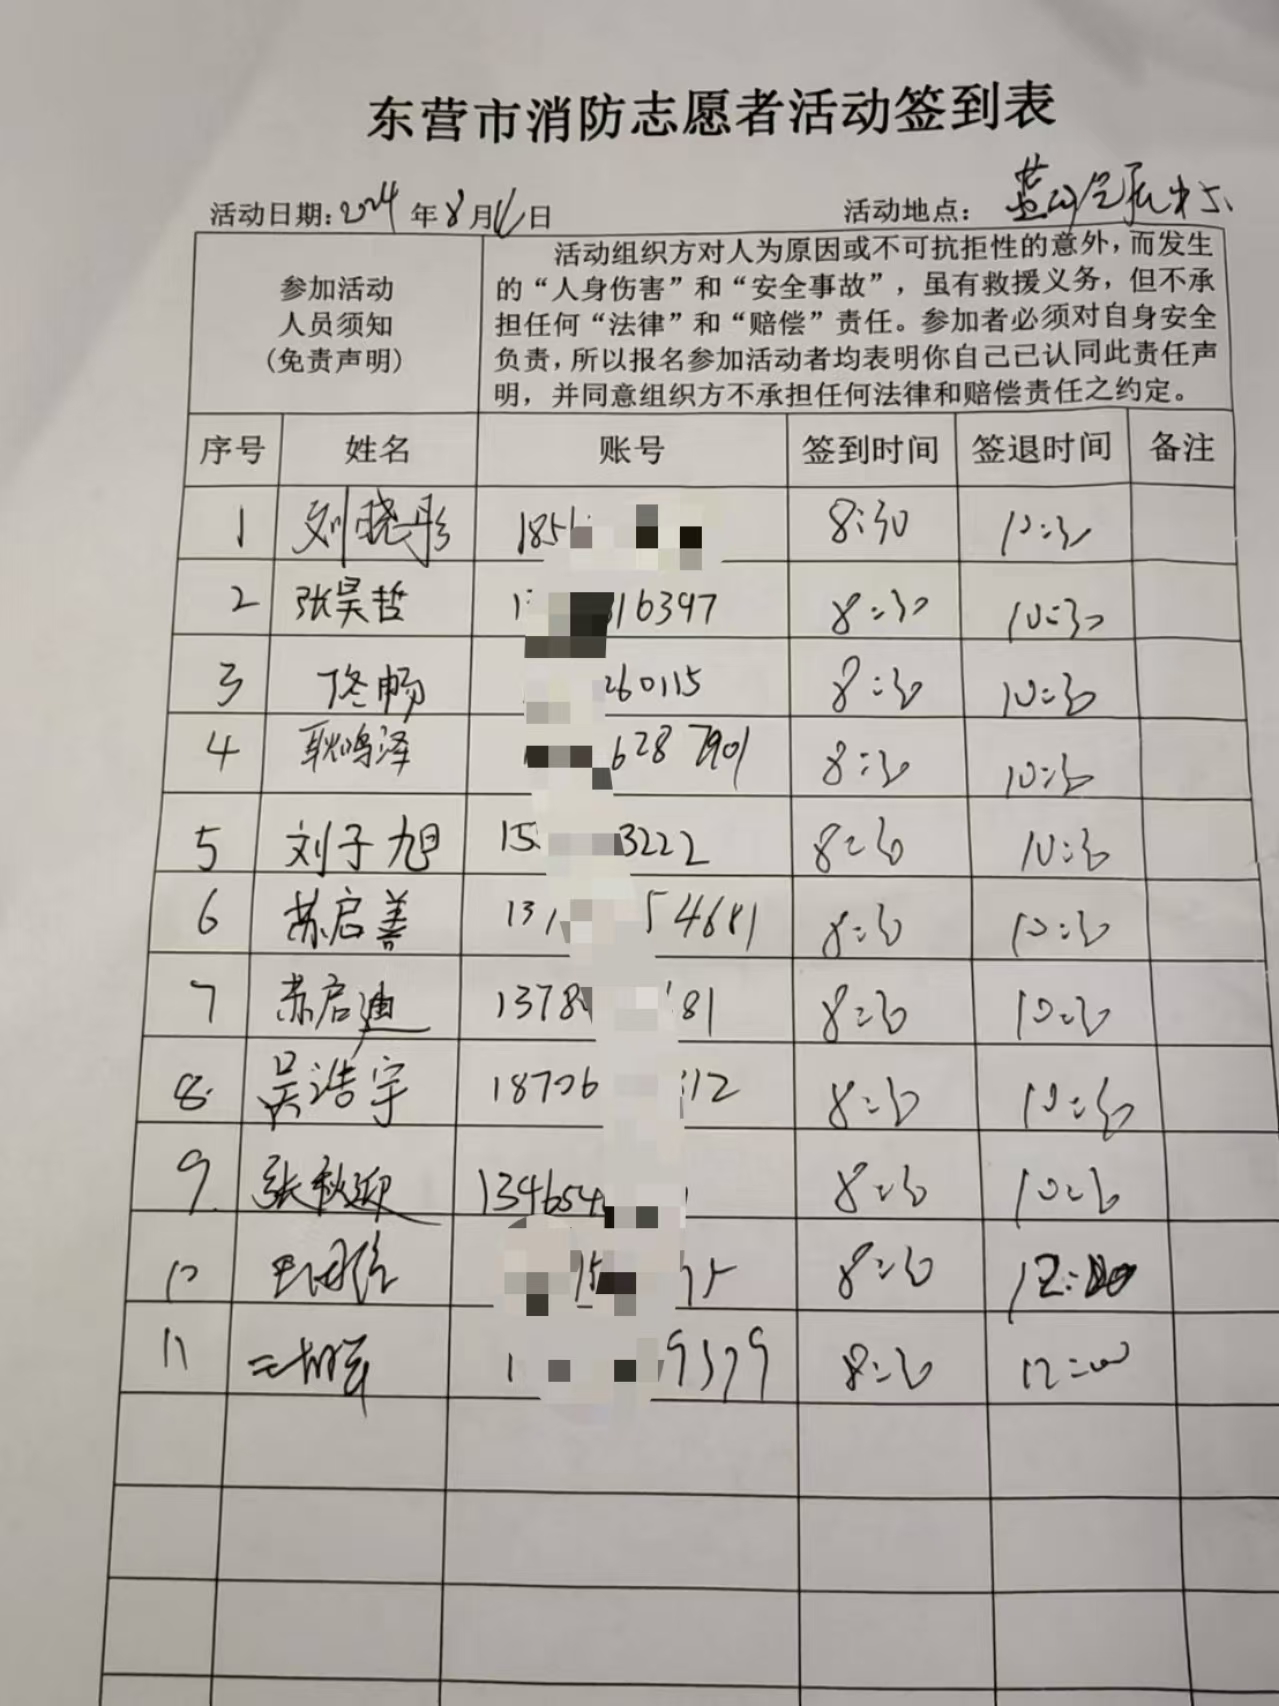 东营市消防志愿者活动签到表
活动日期：2024年8月 日 活动地点：
参加活动
人员须知
(免责声明)
活动组织方对人为原因或不可抗拒性的意外，而发生
的“人身伤害”和“安全事故”，虽有救援义务，但不承
担任何“法律”和“赔偿”责任。参加者必须对自身安全
负责，所以报名参加活动者均表明你自己已认同此责任声
明，并同意组织方不承担任何法律和赔偿责任之约定。
序号 姓名 账号 签到时间 签退时间 备注
1 刘晓彤 185 8:30 10:30
2 张昊哲 1 16397 8:30 10:30
3 佟畅 260115 8:30 10:30
4 耿鸣泽 6287901 8:30 10:30
5 刘子旭 15 3222 8:30 10:30
6 苏启善 13 54681 8:30 10:30
7 苏启迪 1378 81 8:30 10:30
8 吴浩宇 18706 12 8:30 10:30
9 张秋迎 134654 8:30 10:30
10 15 75 8:30 12:00
11 1 9379 8:30 12:00